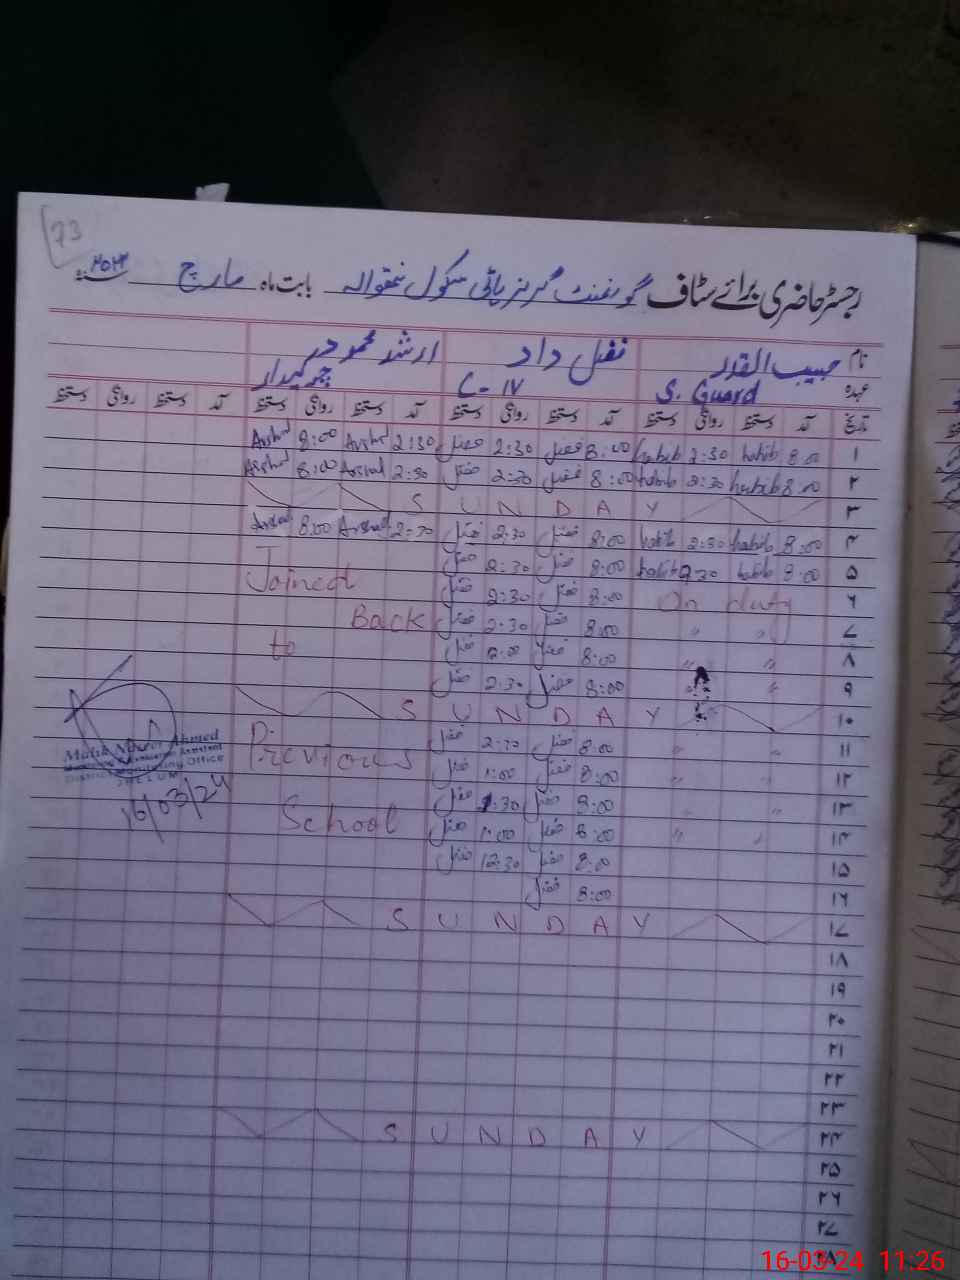 73
رجسٹر حاضری برائے سٹاف گورنمنٹ گرلز ہائی سکول بابت ماہ مارچ ۲۰۲۴
نام حبیب القدر فضل داد ارشد محمود
عہدہ S. Guard C-IV چوکیدار
تاریخ آمد دستخط روانگی دستخط آمد دستخط روانگی دستخط آمد دستخط روانگی دستخط آمد دستخط روانگی دستخط
۱ 8:00 habib 2:30 habib 8:00 فضل 2:30 فضل 2:30 Arshad 8:00 Arshad
۲ 8:00 habib 2:30 habib 8:00 فضل 2:30 فضل 2:30 Arshad 8:00 Arshad
۳ SUNDAY
۴ 8:00 habib 2:30 habib 8:00 فضل 2:30 فضل 2:30 Arshad 8:00 Arshad
۵ 8:00 habib 2:30 habib 8:00 فضل 2:30 فضل Joined
۶ On duty 8:00 فضل 2:30 فضل
۷ " " 8:00 فضل 2:30 فضل Back
۸ " " 8:00 فضل فضل to
۹ " " 8:00 فضل 2:30 فضل
۱۰ SUNDAY
۱۱ " " 8:00 فضل 2:30 فضل Previous
۱۲ " " 8:00 فضل 1:00 فضل
۱۳ " " 8:00 فضل 1:30 فضل School
۱۴ " " 8:00 فضل 1:00 فضل
۱۵ 8:00 فضل 12:30 فضل
۱۶ 8:00 فضل
۱۷ SUNDAY
۱۸
۱۹
۲۰
۲۱
۲۲
۲۳
۲۴ SUNDAY
۲۵
۲۶
۲۷
۲۸
Malik Ahmed
Monitoring
District Monitoring Office
JHELUM
16/03/24
16-03-24 11:26